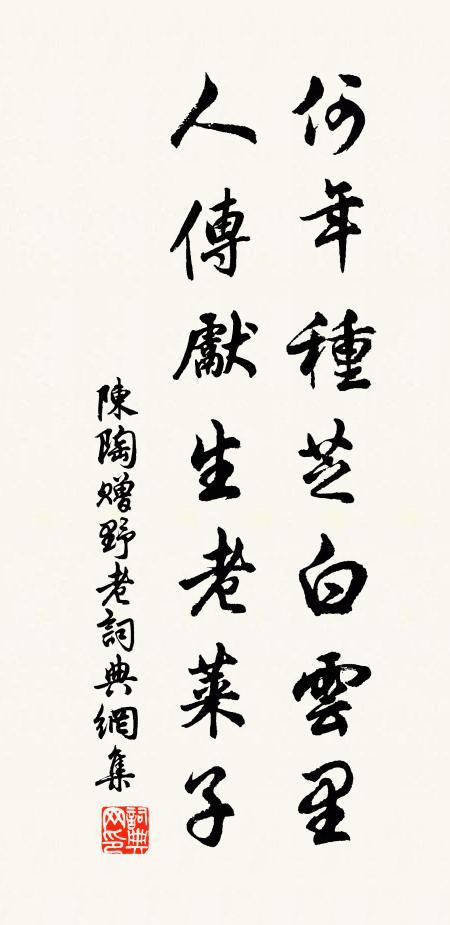 何年種芝白雲里
人傳獻生老萊子
陳陶贈野老詞典網集
詞典網印